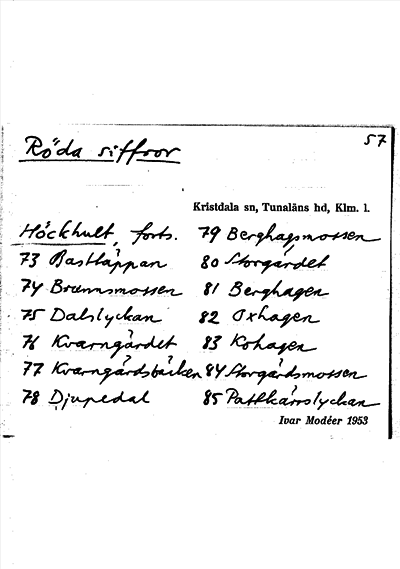 57
Röda siffror
Kristdala sn, Tunaläns hd, Klm. l.
Höckhult, forts.
73 Bastläppan
74 Brunnsmossen
75 Dalslyckan
76 Kvarngärdet
77 Kvarngårdsbäcken
78 Djupedal
79 Berghagsmossen
80 Storgärdet
81 Berghagen
82 Oxhagen
83 Kohagen
84 Storgårdsmossen
85 Pattkärrslyckan
Ivar Modéer 1953